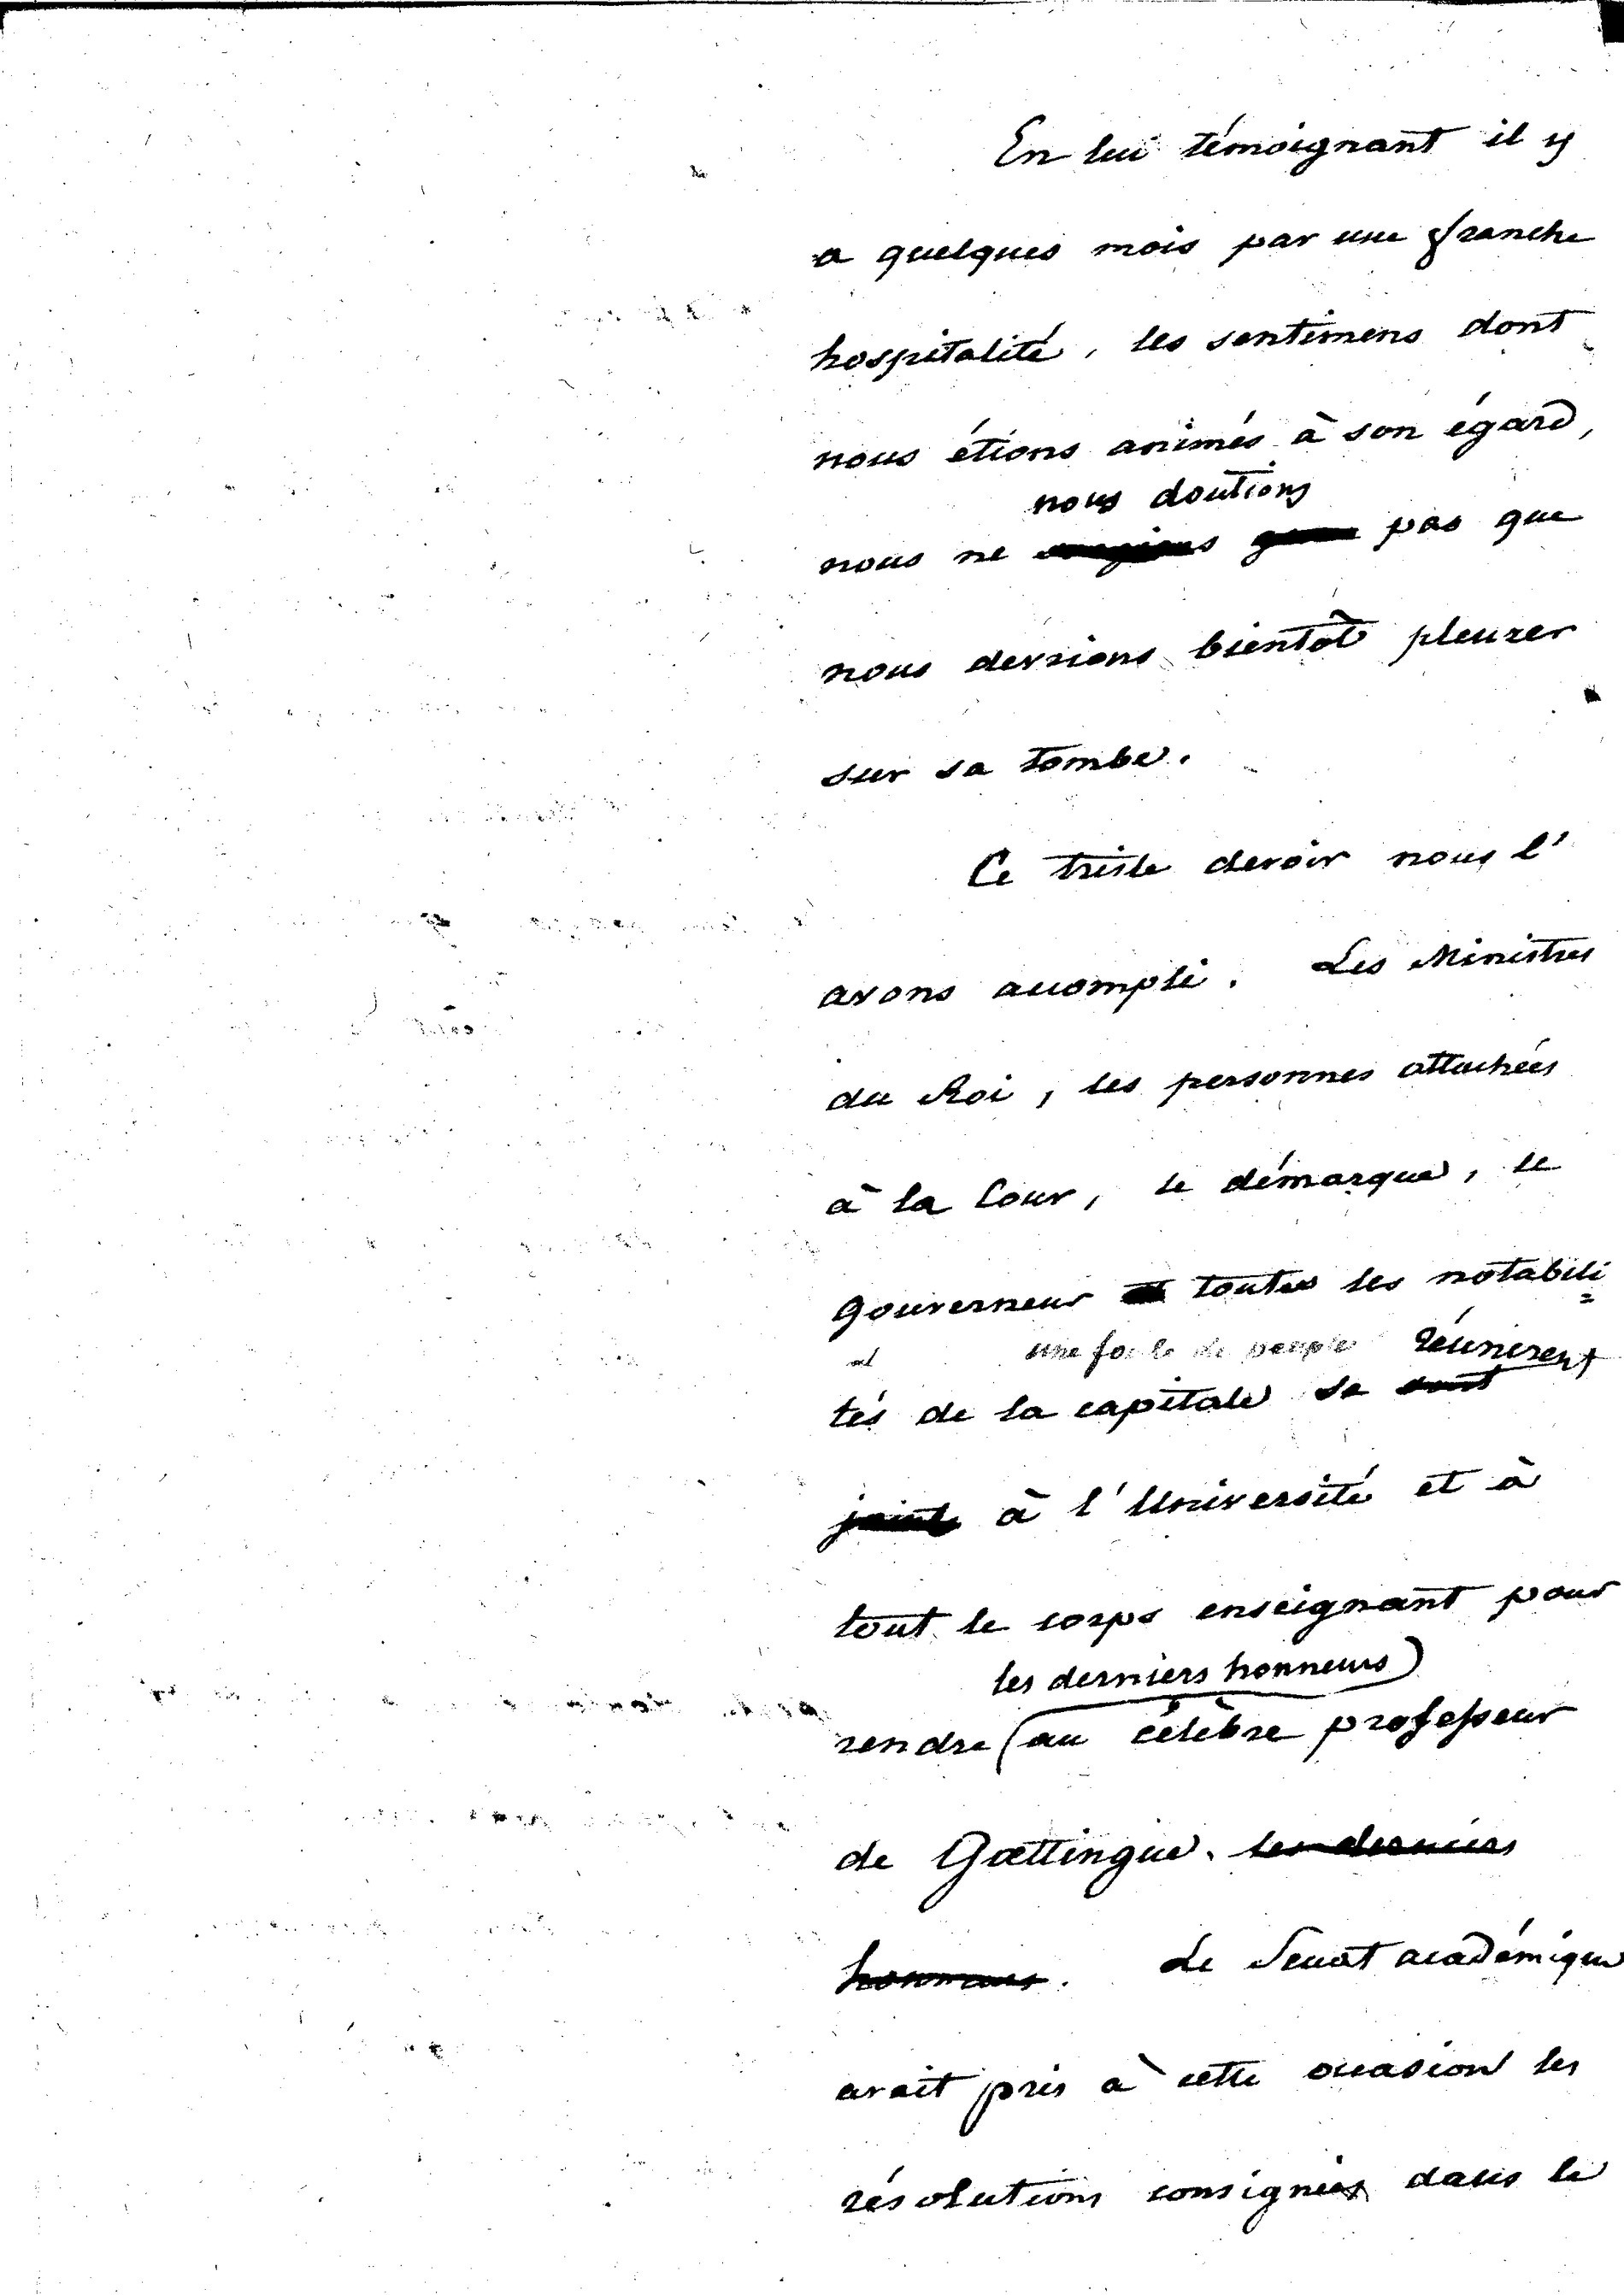 En lui témoignant il y
a quelques mois par une franche
hospitalité, les sentimens dont
nous étions animés à son égard,
nous doutions
nous ne pas que
nous devrions bientôt pleurer
sur sa tombe.
Ce triste devoir nous l'
avons accompli. Les Ministres
du Roi, les personnes attachées
à la Cour, le démarque, le
Gouverneur toutes les notabili=
et une foule de peuple réunirent
tés de la capitale se sont
joints à l'Université et à
tout le corps enseignant pour
les derniers honneurs)
rendre (au célèbre professeur
de Gœttingue. les derniers
honneurs. Le Senat académique
avait pris à cette occasion les
résolutions consignées dans le